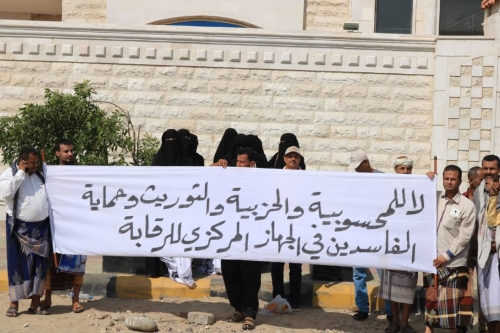 لا للمحسوبية والحزبية والتوريث وحماية
الفاسدين في الجهاز المركزي للرقابة